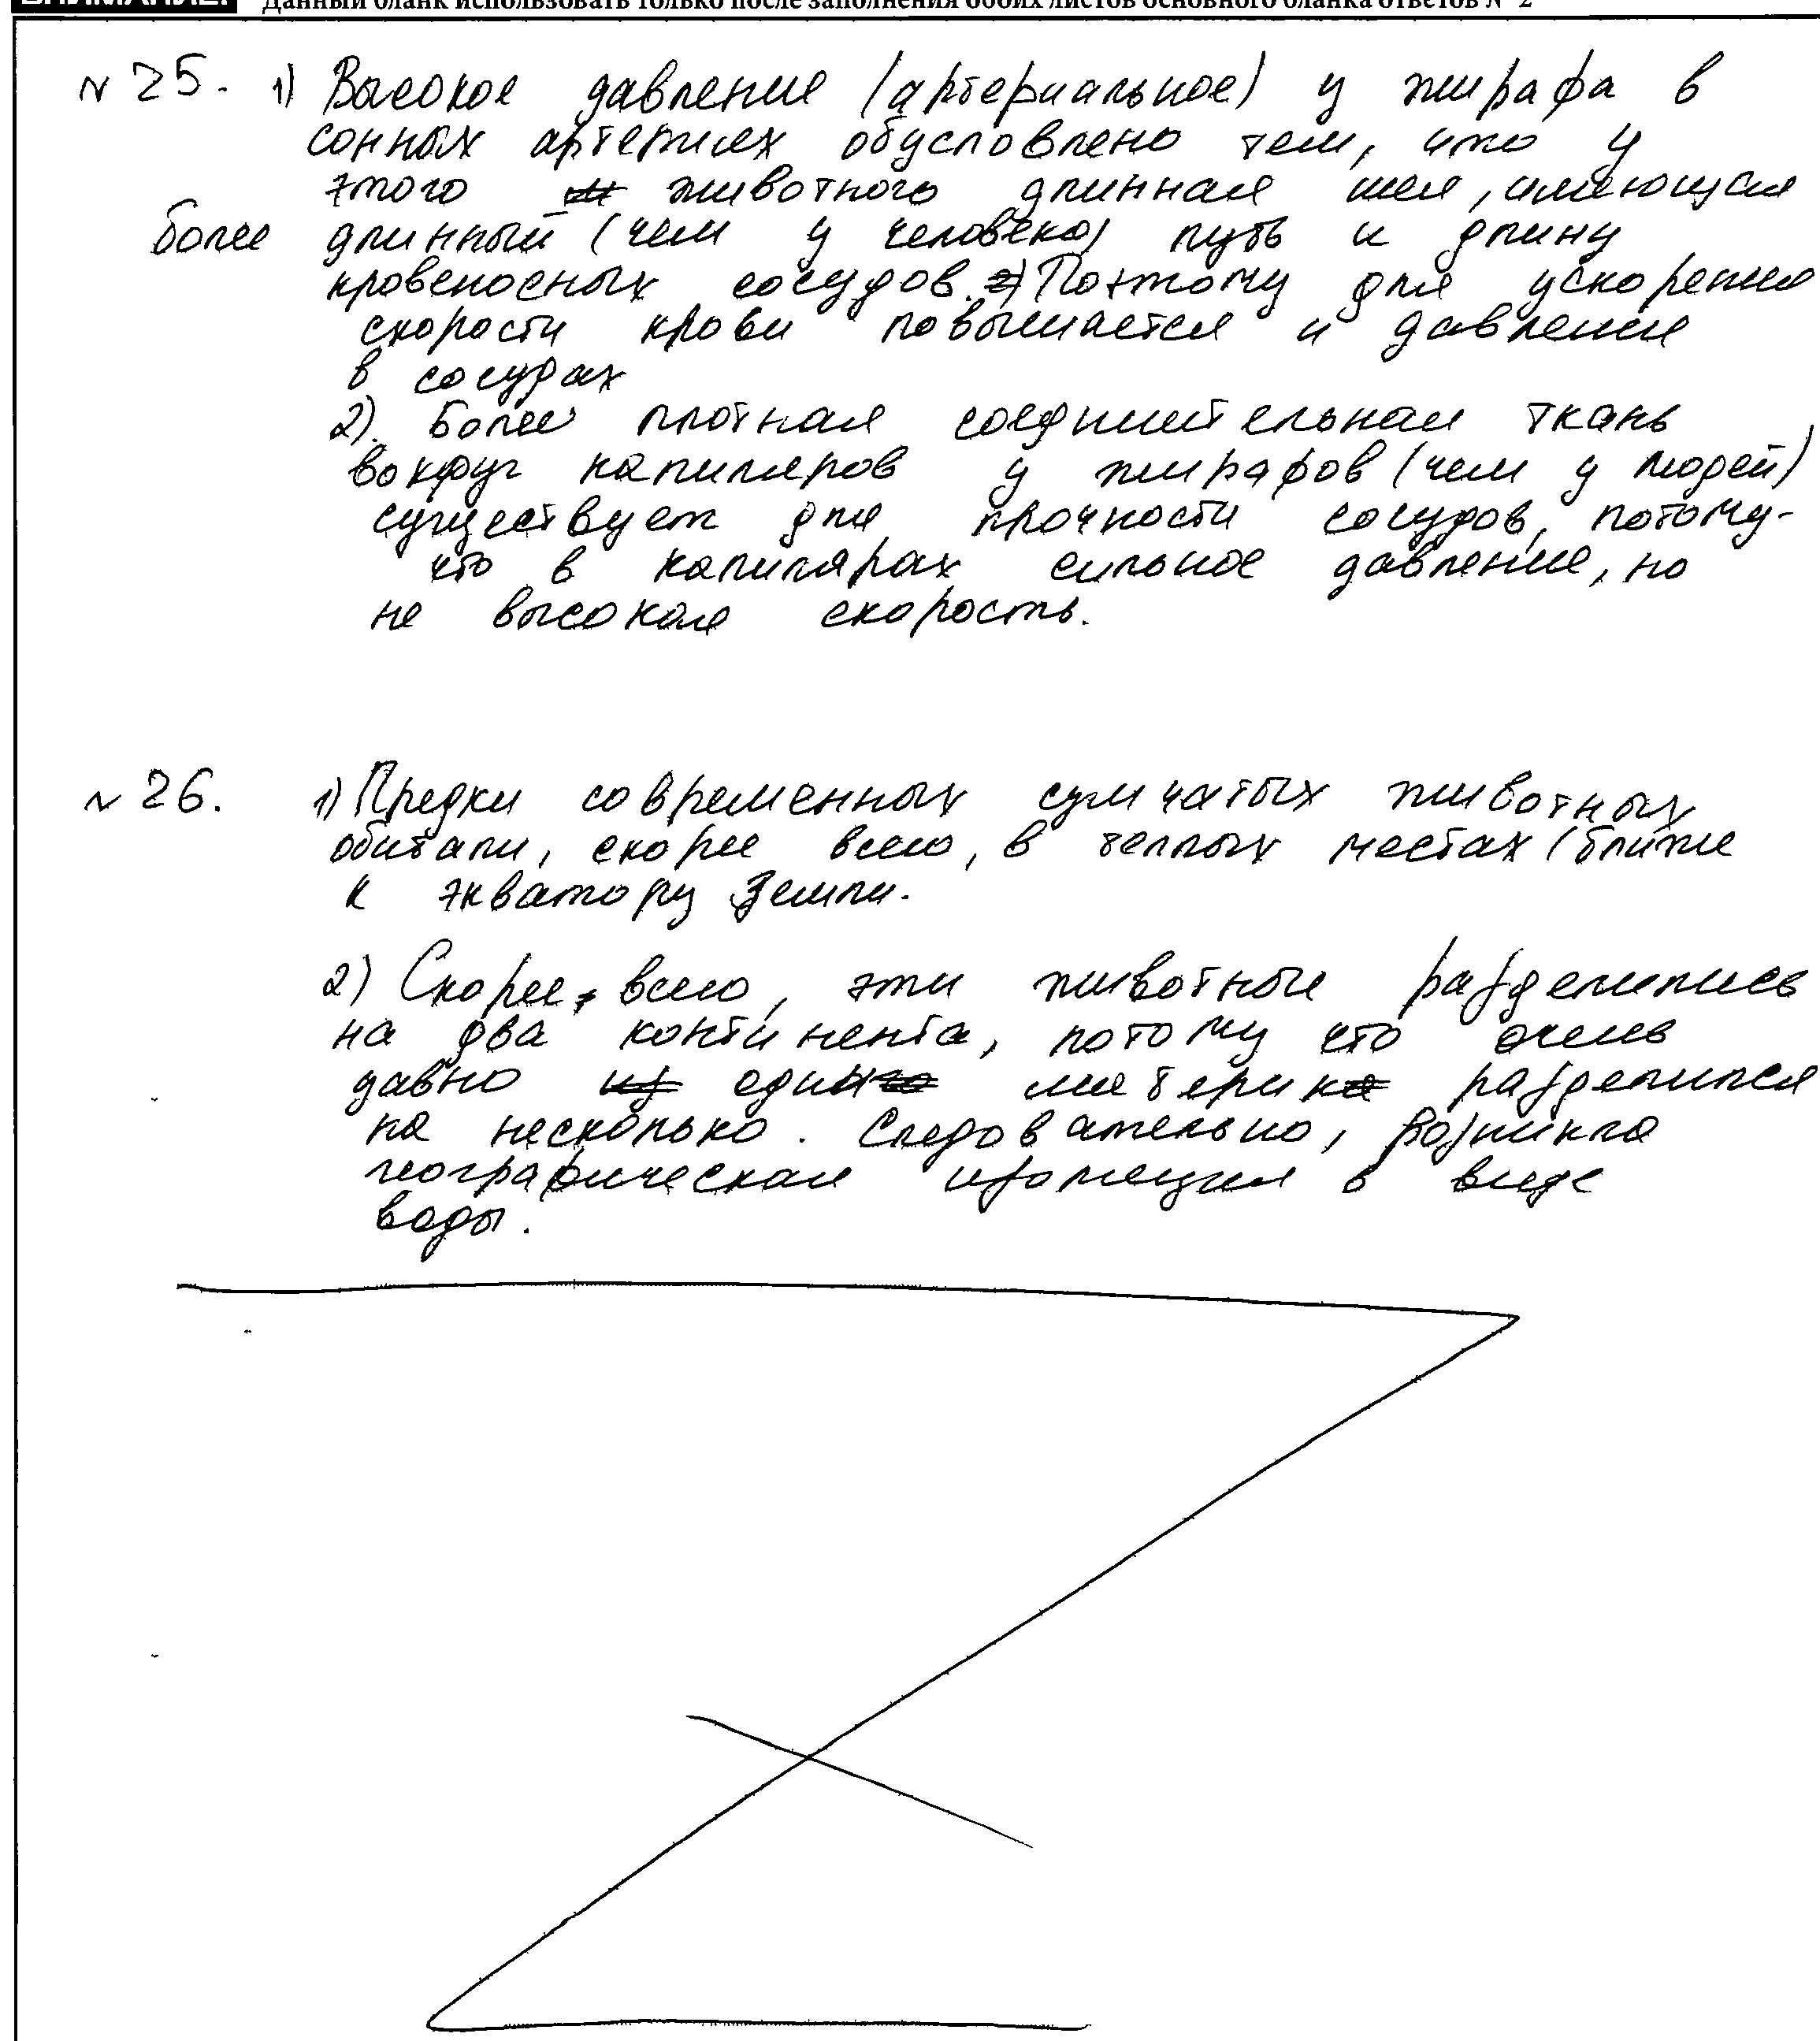 Данный бланк использовать только после заполнения обоих листов основного бланка ответов № 2
№ 25. 1) Высокое давление (артериальное) у жирафа в
сонных артериях обусловлено тем, что у
этого животного длинная шея, имеющая
более длинный (чем у человека) путь и длину
кровеносных сосудов. 2) Поэтому для ускорения
скорости крови повышается и давление
в сосудах
2). Более плотная соединительная ткань
вокруг капиляров у жирафов (чем у людей)
существует для прочности сосудов, потому-
что в капилярах сильное давление, но
не высокая скорость.
№ 26. 1) Предки современных сумчатых животных
обитали, скорее всего, в теплых местах (ближе
к экватору Земли.
2) Скорее всего, эти животные разделились
на два континента, потому что очень
давно из один материк разделился
на несколько. Следовательно, возникла
географическая изоляция в виде
воды.